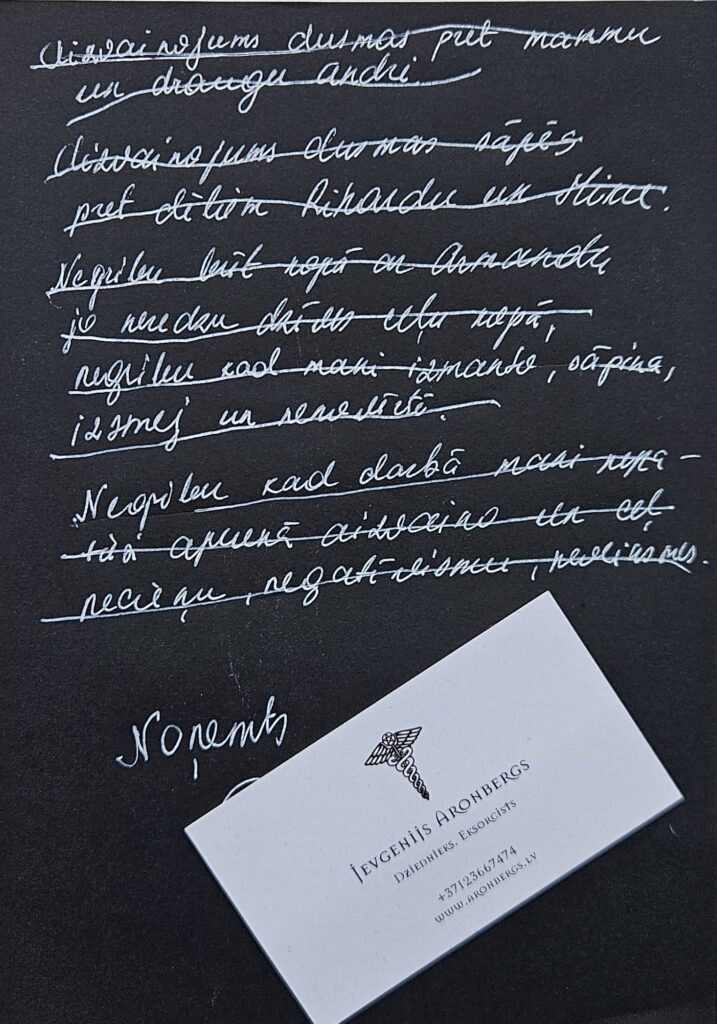 Aizvainojums dusmas pret mammu
un draugu Andri.
Aizvainojums dusmas sāpēs
pret dēliem Rihardu un
Negribu būt kopā ar Armandu,
jo neredzu dzīves ceļu kopā,
negribu kad mani izmanto, sāpina,
izsmej un
Negribu kad darbā mani nepa-
aprunā aizvaino un ceļ
necieņu, negatīvismu,
Noņemts
Jevgenijs Aronbergs
Dziednieks. Eksorcists
+37123667474
www.aronbergs.lv